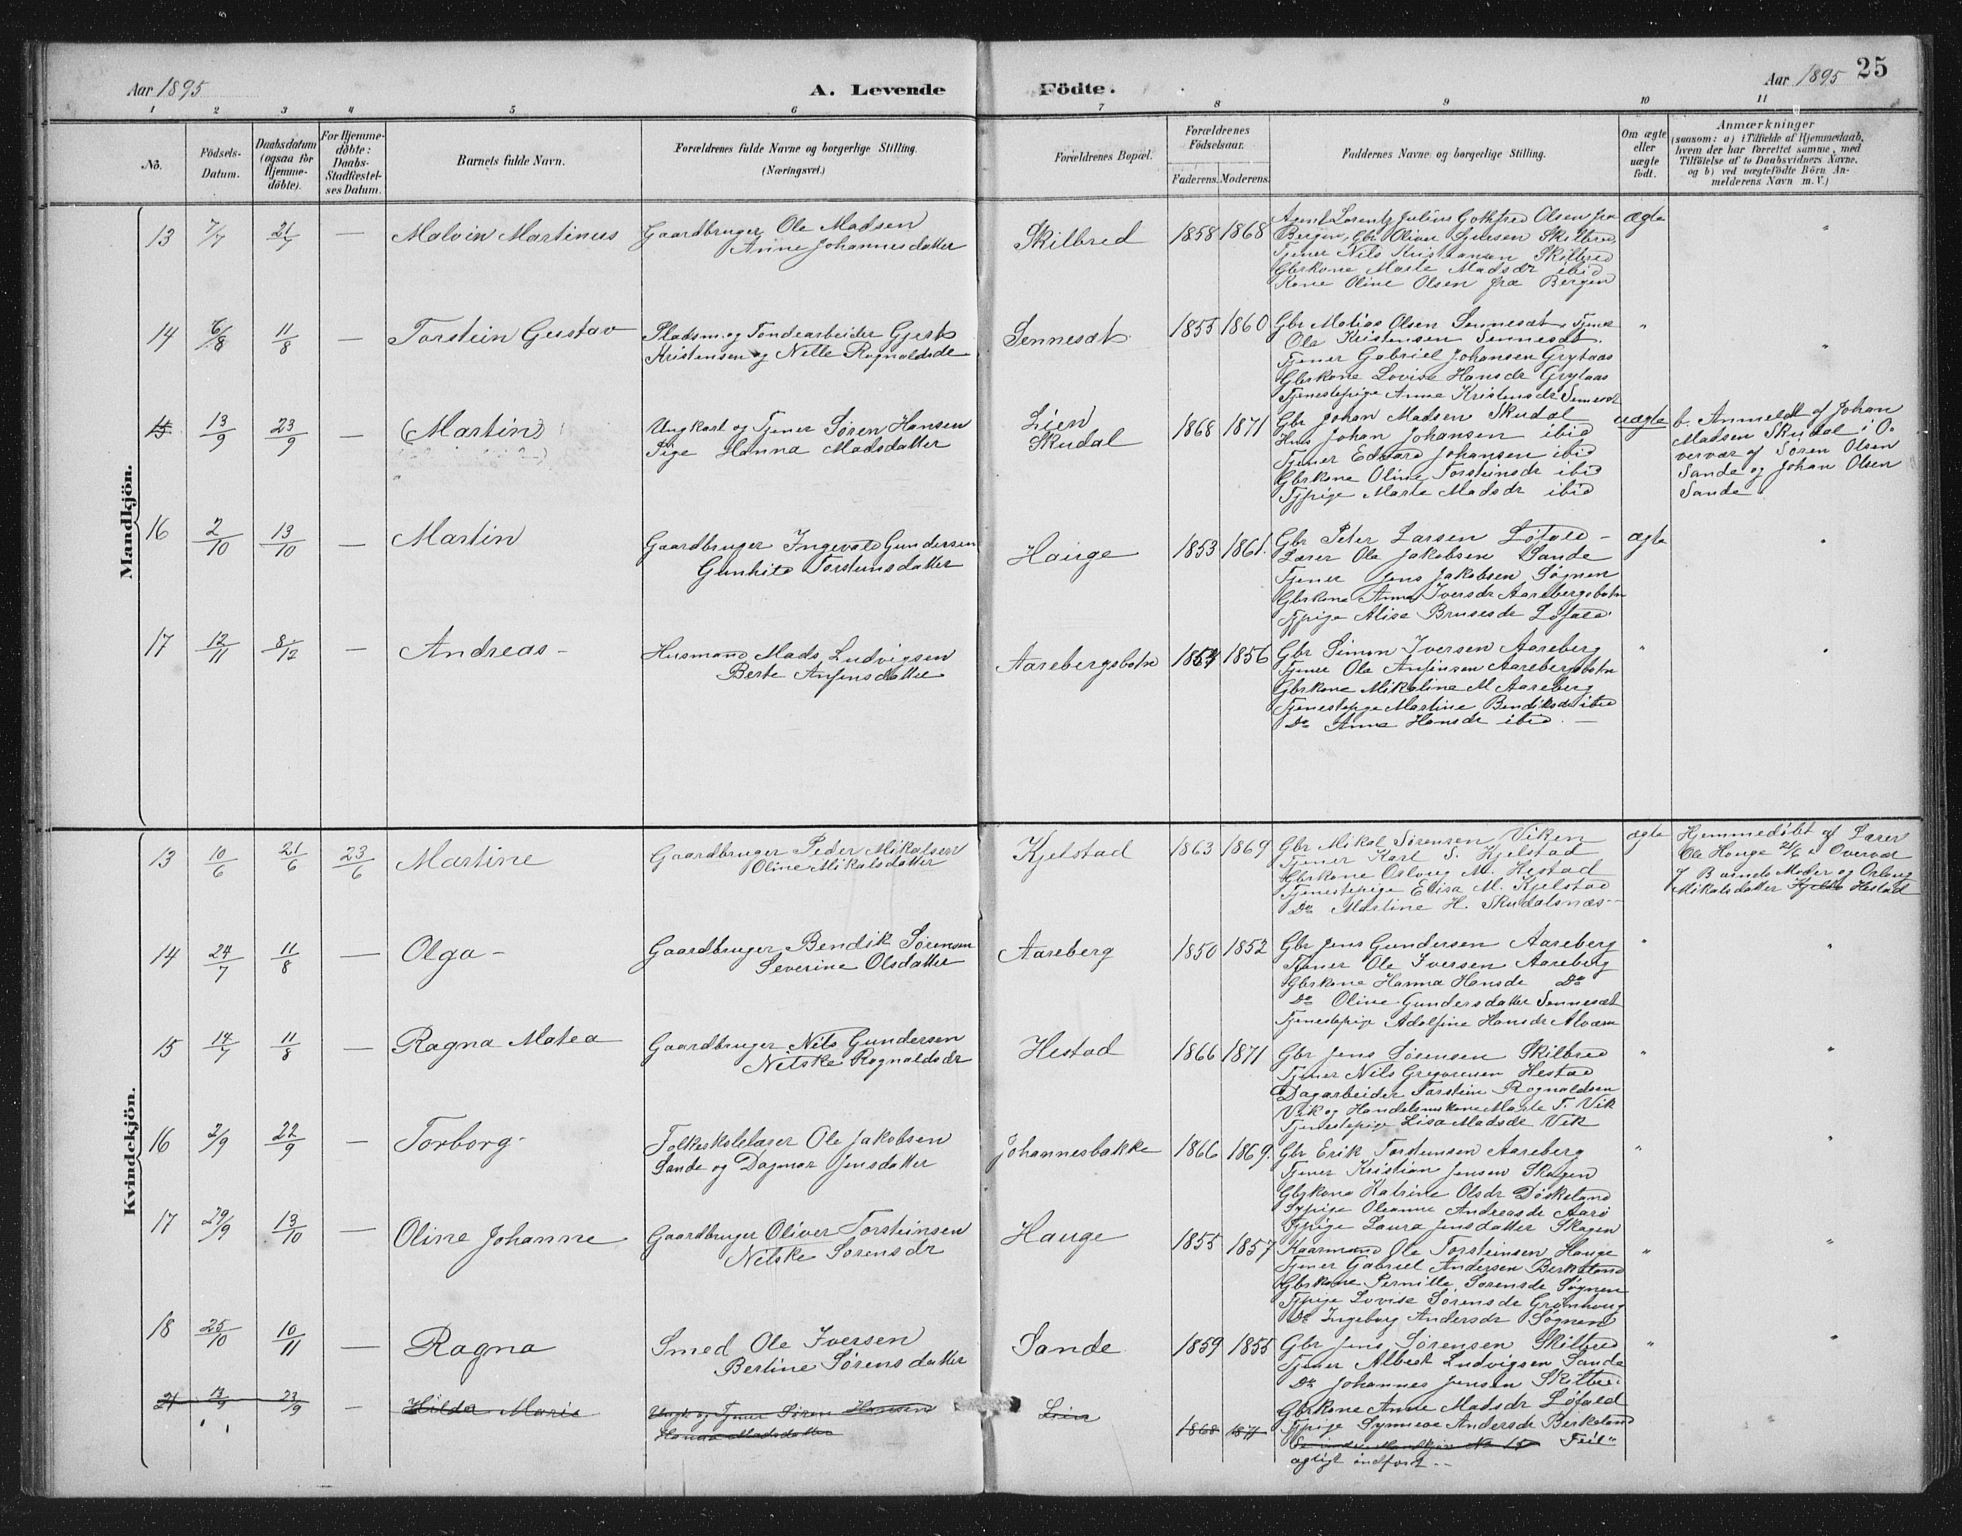 Aar 1895
A. Levende
Födte.
Aar 1895
25
1 2 3 4 5 6 7 8 9 10 11
No.
Födsels-
Datum.
Daabsdatum
(ogsaa for
Hjemme-
döbte).
For Hjemme-
döbte:
Daabs-
Stadfæstel-
ses Datum.
Barnets fulde Navn.
Forældrenes fulde Navne og borgerlige Stilling.
(Næringsvei.)
Forældrenes Bopæl.
Forældrenes
Födselsaar.
Faderens. Moderens.
Faddernes Navne og borgerlige Stilling.
Om ægte
eller
uægte
födt.
Anmærkninger
(saasom: a) i Tilfælde af Hjemmedaab,
hvem der har forrettet samme, med
Tilföielse af to Daabsvidners Navne,
og b) ved uægtefödte Börn An-
melderens Navn m. V.)
Mandkjön.
13 7/7 21/7 — Malvin Martinus
Gaardbruger Ole Madsen
Anne Johannesdatter
Skilbred 1858 1868
Agent Lorentz Julius Gothfred Olsen fra
Bergen, Gbr Oliver Jensen Skilbred,
Tjener Nils Kristiansen Skilbred
Gbrkone Marte Madsdr ibid
Kone Oline Olsen fra Bergen
ægte "
14 6/8 11/8 — Torstein Gustav
Pladsm. og Tøndearbeider Gjert
Kristensen og Nille Ragnaldsdr
Sennesæt 1855 1860
Gbr Matias Olsen Sennesæt, Tjener
Ole Kristensen Sennesæt.
Tjener Gabriel Johansen Grytaas
Gbrkone Lovise Hansdr Grytaas
Tjenestepige Anna Kristensdr Sennesæt
" "
15 13/9 23/9 — (Martin)
Ungkarl og Tjener Søren Hansen
Pige Hanna Madsdatter
Lien
Skudal
1868 1871
Gbr Johan Madsen Skudal
Hus Johan Johansen ibid
Tjener Edvard Johansen ibid
Gbrkone Oline Torsteinsdr ibid
Tjpige Marte Madsdr ibid
uægte
b. Anmeldt af Johan
Madsen Skudal i O-
vervær af Søren Olsen
Sande og Johan Olsen
Sande.
16 2/10 13/10 — Martin
Gaardbruger Ingevald Gundersen
Gunhild Torsteinsdatter
Hauge 1853 1861.
Gbr Peter Larsen Løfald —
Lærer Ole Jakobsen Sande
Tjener Jens Jakobsen Søgnen
Gbrkone Anna Iversdr Aarebergsbotn
Tjpige Alise Brunesdr Løfald.
ægte "
17 12/11 8/12 — Andreas –
Husmand Mads Ludvigsen
Berte Anfinsdatter
Aarebergsbotn 1854 1856
Gbr Simon Iversen Aareberg
Tjener Ole Anfinsen Aarebergsbotn
Gbrkone Mikaline M Aareberg
Tjenestepige Martine Bendiksdr ibid
Do Anne Hansdr ibid. —
" "
Kvindekjön.
13 10/6 21/6 23/6 Martine
Gaardbruger Peder Mikalsen
Oline Mikalsdatter
Kjelstad 1863 1869
Gbr Mikal Sørensen Viken
Tjener Karl S. Kjelstad
Gbrkone Oslaug M. Hestad
Tjenestepige Elisa M. Kjelstad
Do Martine H. Skudalsnæs —
ægte
Hjemmedøbt af Lærer
Ole Hauge 21/6 i Overvær
af Barnets Moder og Oslaug
Mikalsdatter Hestad
14 24/7 11/8 — Olga –
Gaardbruger Bendik Sørensen
Severine Olsdatter
Aareberg 1850 1852
Gbr Jens Gundersen Aareberg
Tjener Ole Iversen Aareberg
Gbrkone Hanna Hansdr Do
Do Oline Gundersdatter Sennesæt
Tjenestepige Adolfine Hansdr Alværn
" "
15 14/7 11/8 — Ragna Matea
Gaardbruger Nils Gundersen
Nilske Ragnaldsdr
Hestad 1866 1871
Gbr Jens Sørensen Skilbred
Tjener Nils Gregoriusen Hestad
Dagarbeider Torstein Ragnaldsen
Vik og Handelsmskone Marte T. Vik
Tjenestepige Lisa Madsdr Vik
" "
16 2/9 22/9 — Torborg –
Folkeskolelærer Ole Jakobsen
Sande og Dagmar Jensdatter
Johannesbakke 1866 1869.
Gbr Erik Torsteinsen Aareberg
Tjener Kristian Jensen Skagen
Gbrkone Katrine Olsdr Døskeland
Tjpige Oleanne Andreasdr Aarø
Tjpige Laura Jensdatter Skagen
" "
17 29/9 13/10 — Oline Johanne
Gaardbruger Oliver Torsteinsen
Nilske Sørensdr
Hauge 1855 1857
Kaarmand Ole Torsteinsen Hauge
Tjener Gabriel Andersen Berkeland
Gbrkone Pernille Sørensdr Søgnen
Tjpige Lovise Sørensdr Grønhaug
Do Ingeborg Andersdr Søgnen
" "
18 25/10 10/11 — Ragna
Smed Ole Iversen
Bertine Sørensdatter
Sande 1859 1855
Gbr Jens Sørensen Skilbred
Tjener Albert Ludvigsen Sande
Do Johannes Jensen Skilbred
Gbrkone Anne Madsdr Løfald
Tjpige Synneve Andersdr Berkeland
" "
21 13/9 23/9 — Hilda Marie
Ungk. og Tjener Søren Hansen
Hanna Madsdatter
Lien 1868 1871
No 15 Feil-
agtigt indført. —